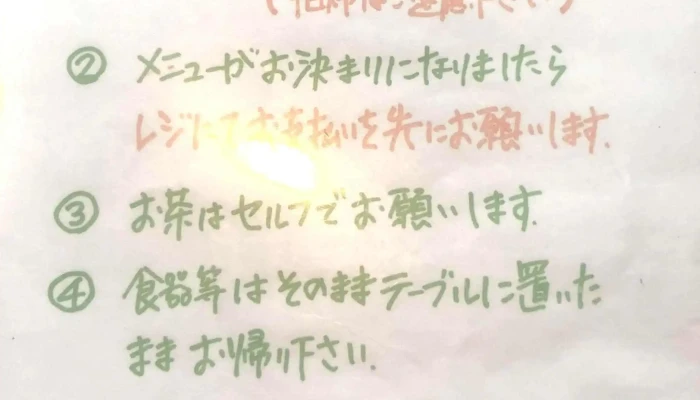 ご遠慮下さい)
② メニューがお決まりになりましたら
レジにてお支払いを先にお願いします.
③ お茶はセルフでお願いします.
④ 食器等はそのままテーブルに置いた
ままお帰り下さい.